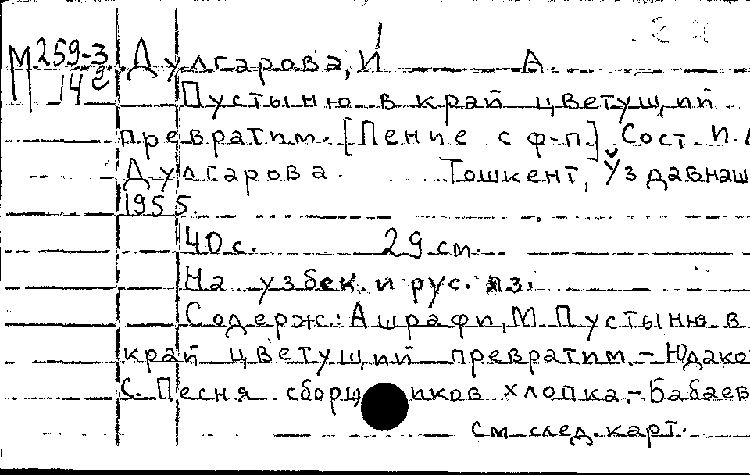 М 259-3
14 г
Дулгарова, И А.
Пустыню в край цветущий
превратим. [Пение с ф-п]. Сост. И.А
Дулгарова. Тошкент, Ўздавнаш
1955.
40 с. 29 см.
На узбек. и рус. яз.
Содерж.: Ашрафи, М. Пустыню в
край цветущий превратим. - Юдако
С. Песня сборщиков хлопка. - Бабаев
см. след. карт.